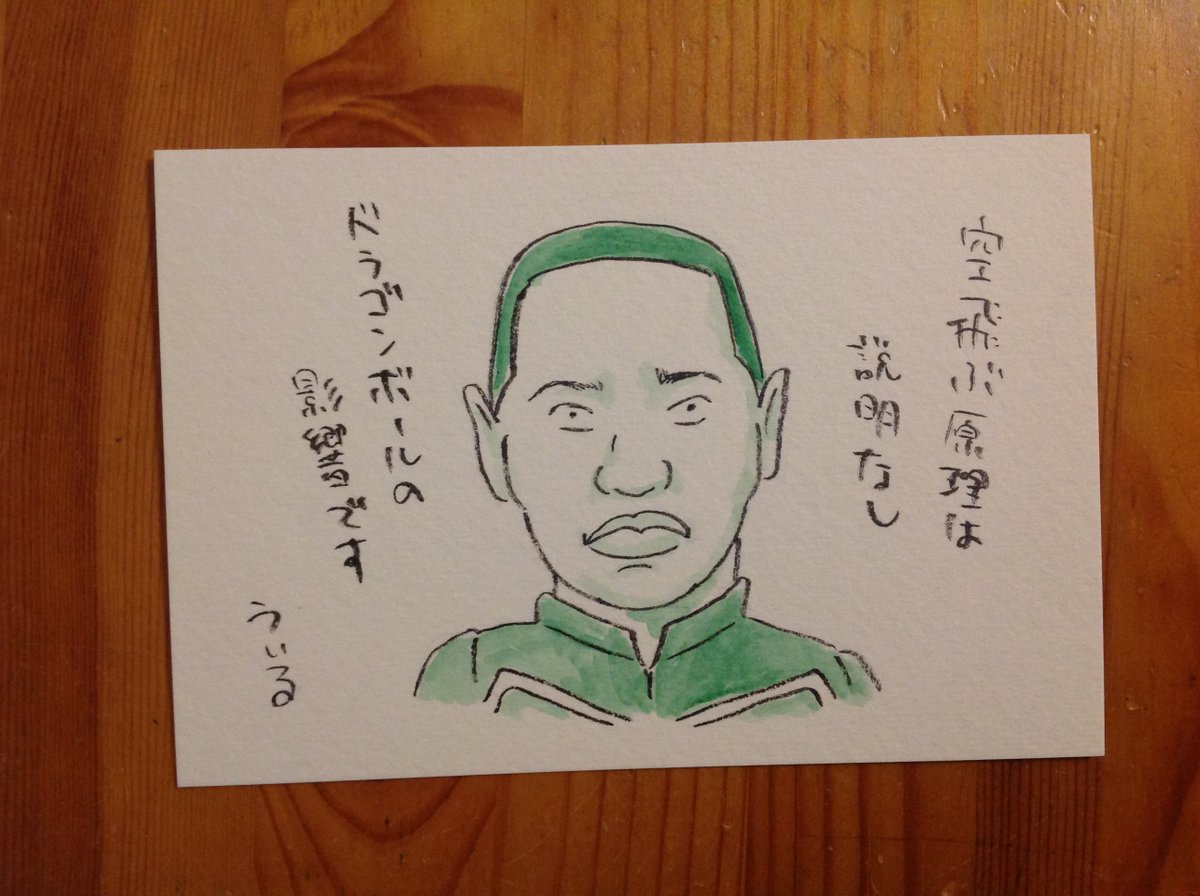 空飛ぶ原理は
説明なし
ドラゴンボールの
影響です
うぃる